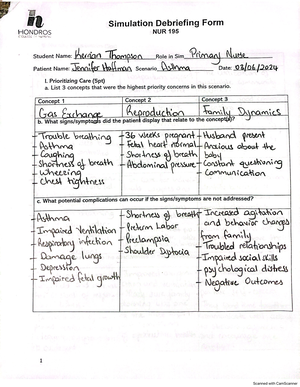 HONDROS
Simulation Debriefing Form
NUR 195
Student Name: Kerrian Thompson Role in Sim Primary Nurse
Patient Name: Jennifer Hoffman Scenario Asthma Date: 03/06/2024
I. Prioritizing Care (5pt)
a. List 3 concepts that were the highest priority concerns in this scenario.
Concept 1 Concept 2 Concept 3
Gas Exchange Reproduction Family Dynamics
b. What signs/symptoms did the patient display that relate to the concept(s)?
- Trouble breathing
- Asthma
- Coughing
- Shortness of breath
- Wheezing
- Chest tightness
- 36 weeks pregnant
- Fetal heart normal
- Shortness of breath
- Abdominal pressure
- Husband present
- Anxious about the
baby
- Constant questioning
- Communication
c. What potential complications can occur if the signs/symptoms are not addressed?
- Asthma
- Impaired Ventilation
- Respiratory infection
- Damage lungs
- Depression
- Impaired fetal growth
- Shortness of breath
- Preterm Labor
- Preeclampsia
- Shoulder Dystocia
- Increased agitation
and behavior changes
from family
- Troubled relationships
- Impaired social skills
- psychological distress
- Negative Outcomes
1
Scanned with CamScanner